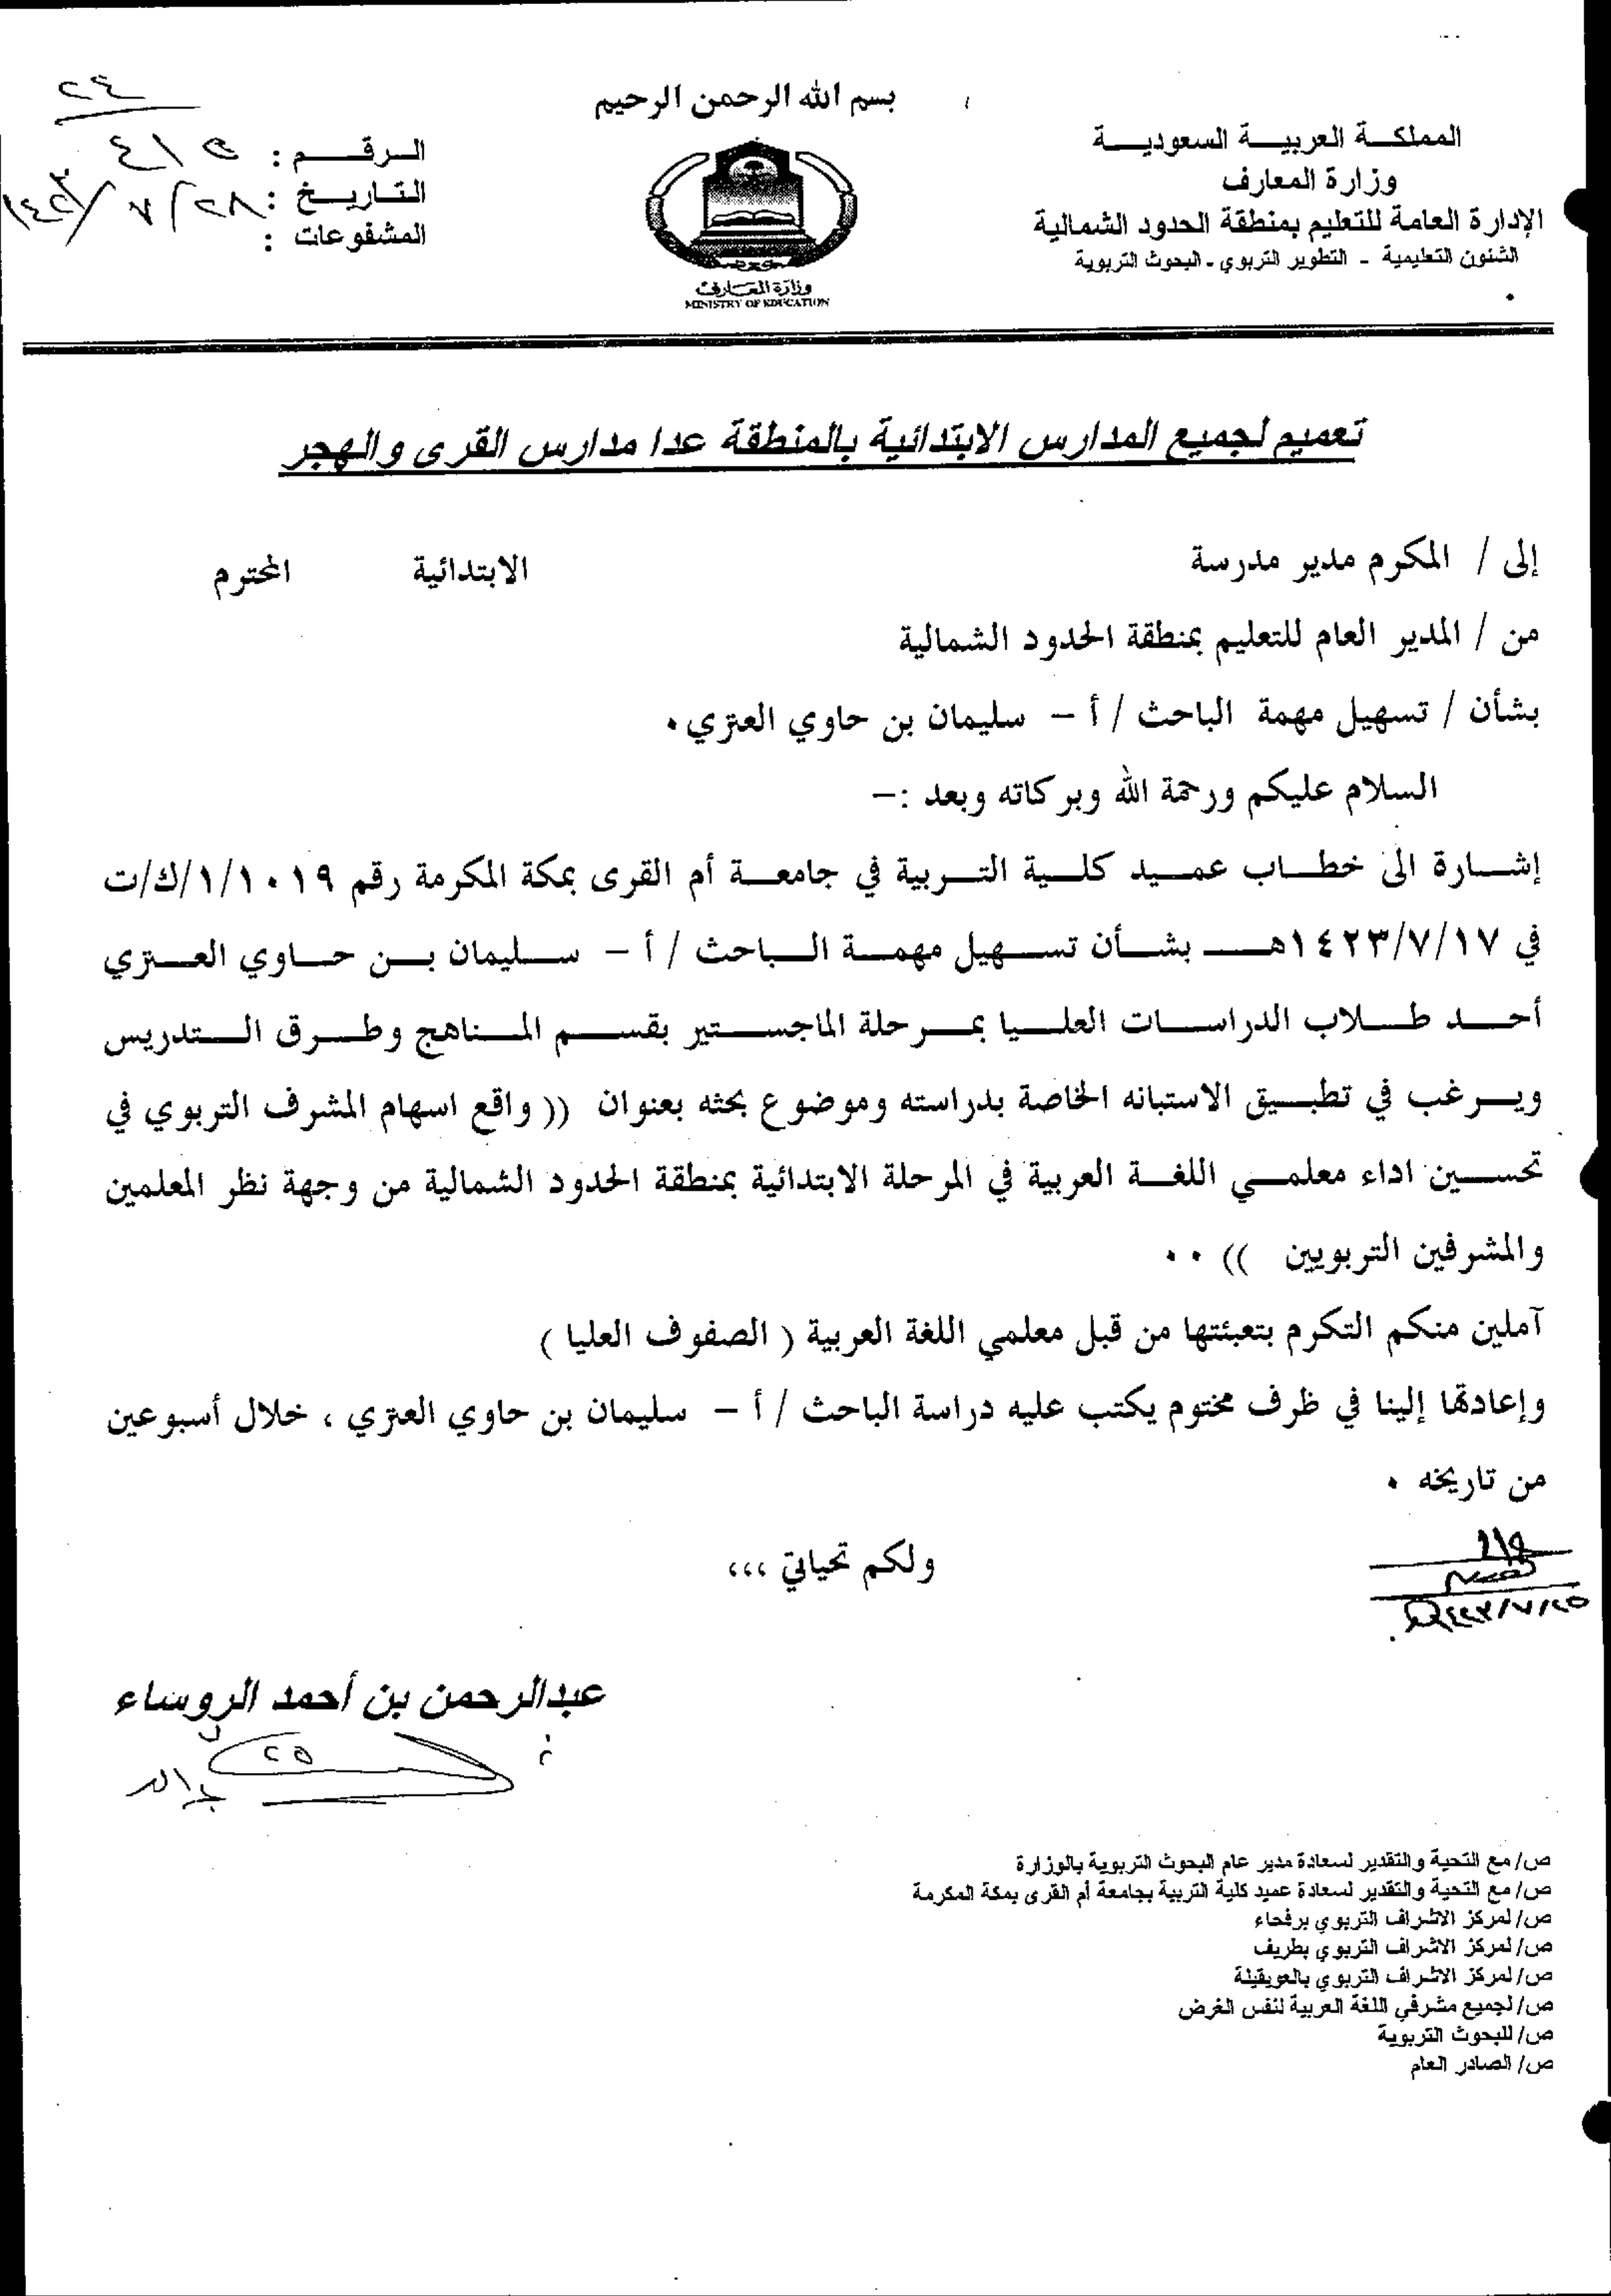 بسم الله الرحمن الرحيم
المملكة العربية السعودية
وزارة المعارف
الإدارة العامة للتعليم بمنطقة الحدود الشمالية
الشئون التعليمية - التطوير التربوي - البحوث التربوية
وزارة المعارف
MINISTRY OF EDUCATION
٢٤
الرقم : ٤١٥
التاريخ : ٢٨/٧/١٤٢٣
المشفوعات :
تعميم لجميع المدارس الابتدائية بالمنطقة عدا مدارس القرى والهجر
إلى / المكرم مدير مدرسة الابتدائية المحترم
من / المدير العام للتعليم بمنطقة الحدود الشمالية
بشأن / تسهيل مهمة الباحث / أ – سليمان بن حاوي العنزي.
السلام عليكم ورحمة الله وبركاته وبعد :–
إشارة الى خطاب عميد كلية التربية في جامعة أم القرى بمكة المكرمة رقم ١/١٠١٩/ك/ت
في ١٤٢٣/٧/١٧هـ بشأن تسهيل مهمة الباحث / أ – سليمان بن حاوي العنزي
أحد طلاب الدراسات العليا بمرحلة الماجستير بقسم المناهج وطرق التدريس
ويرغب في تطبيق الاستبانه الخاصة بدراسته وموضوع بحثه بعنوان (( واقع اسهام المشرف التربوي في
تحسين اداء معلمي اللغة العربية في المرحلة الابتدائية بمنطقة الحدود الشمالية من وجهة نظر المعلمين
والمشرفين التربويين )) ..
آملين منكم التكرم بتعبئتها من قبل معلمي اللغة العربية ( الصفوف العليا )
وإعادتها إلينا في ظرف مختوم يكتب عليه دراسة الباحث / أ – سليمان بن حاوي العنزي ، خلال أسبوعين
من تاريخه .
ولكم تحياتي ،،،
٢٥/٧/١٤٢٣هـ
عبدالرحمن بن أحمد الروساء
٢٥
ص/ مع التحية والتقدير لسعادة مدير عام البحوث التربوية بالوزارة
ص/ مع التحية والتقدير لسعادة عميد كلية التربية بجامعة أم القرى بمكة المكرمة
ص/ لمركز الاشراف التربوي برفحاء
ص/ لمركز الاشراف التربوي بطريف
ص/ لمركز الاشراف التربوي بالعويقيلة
ص/ لجميع مشرفي اللغة العربية لنفس الغرض
ص/ للبحوث التربوية
ص/ الصادر العام